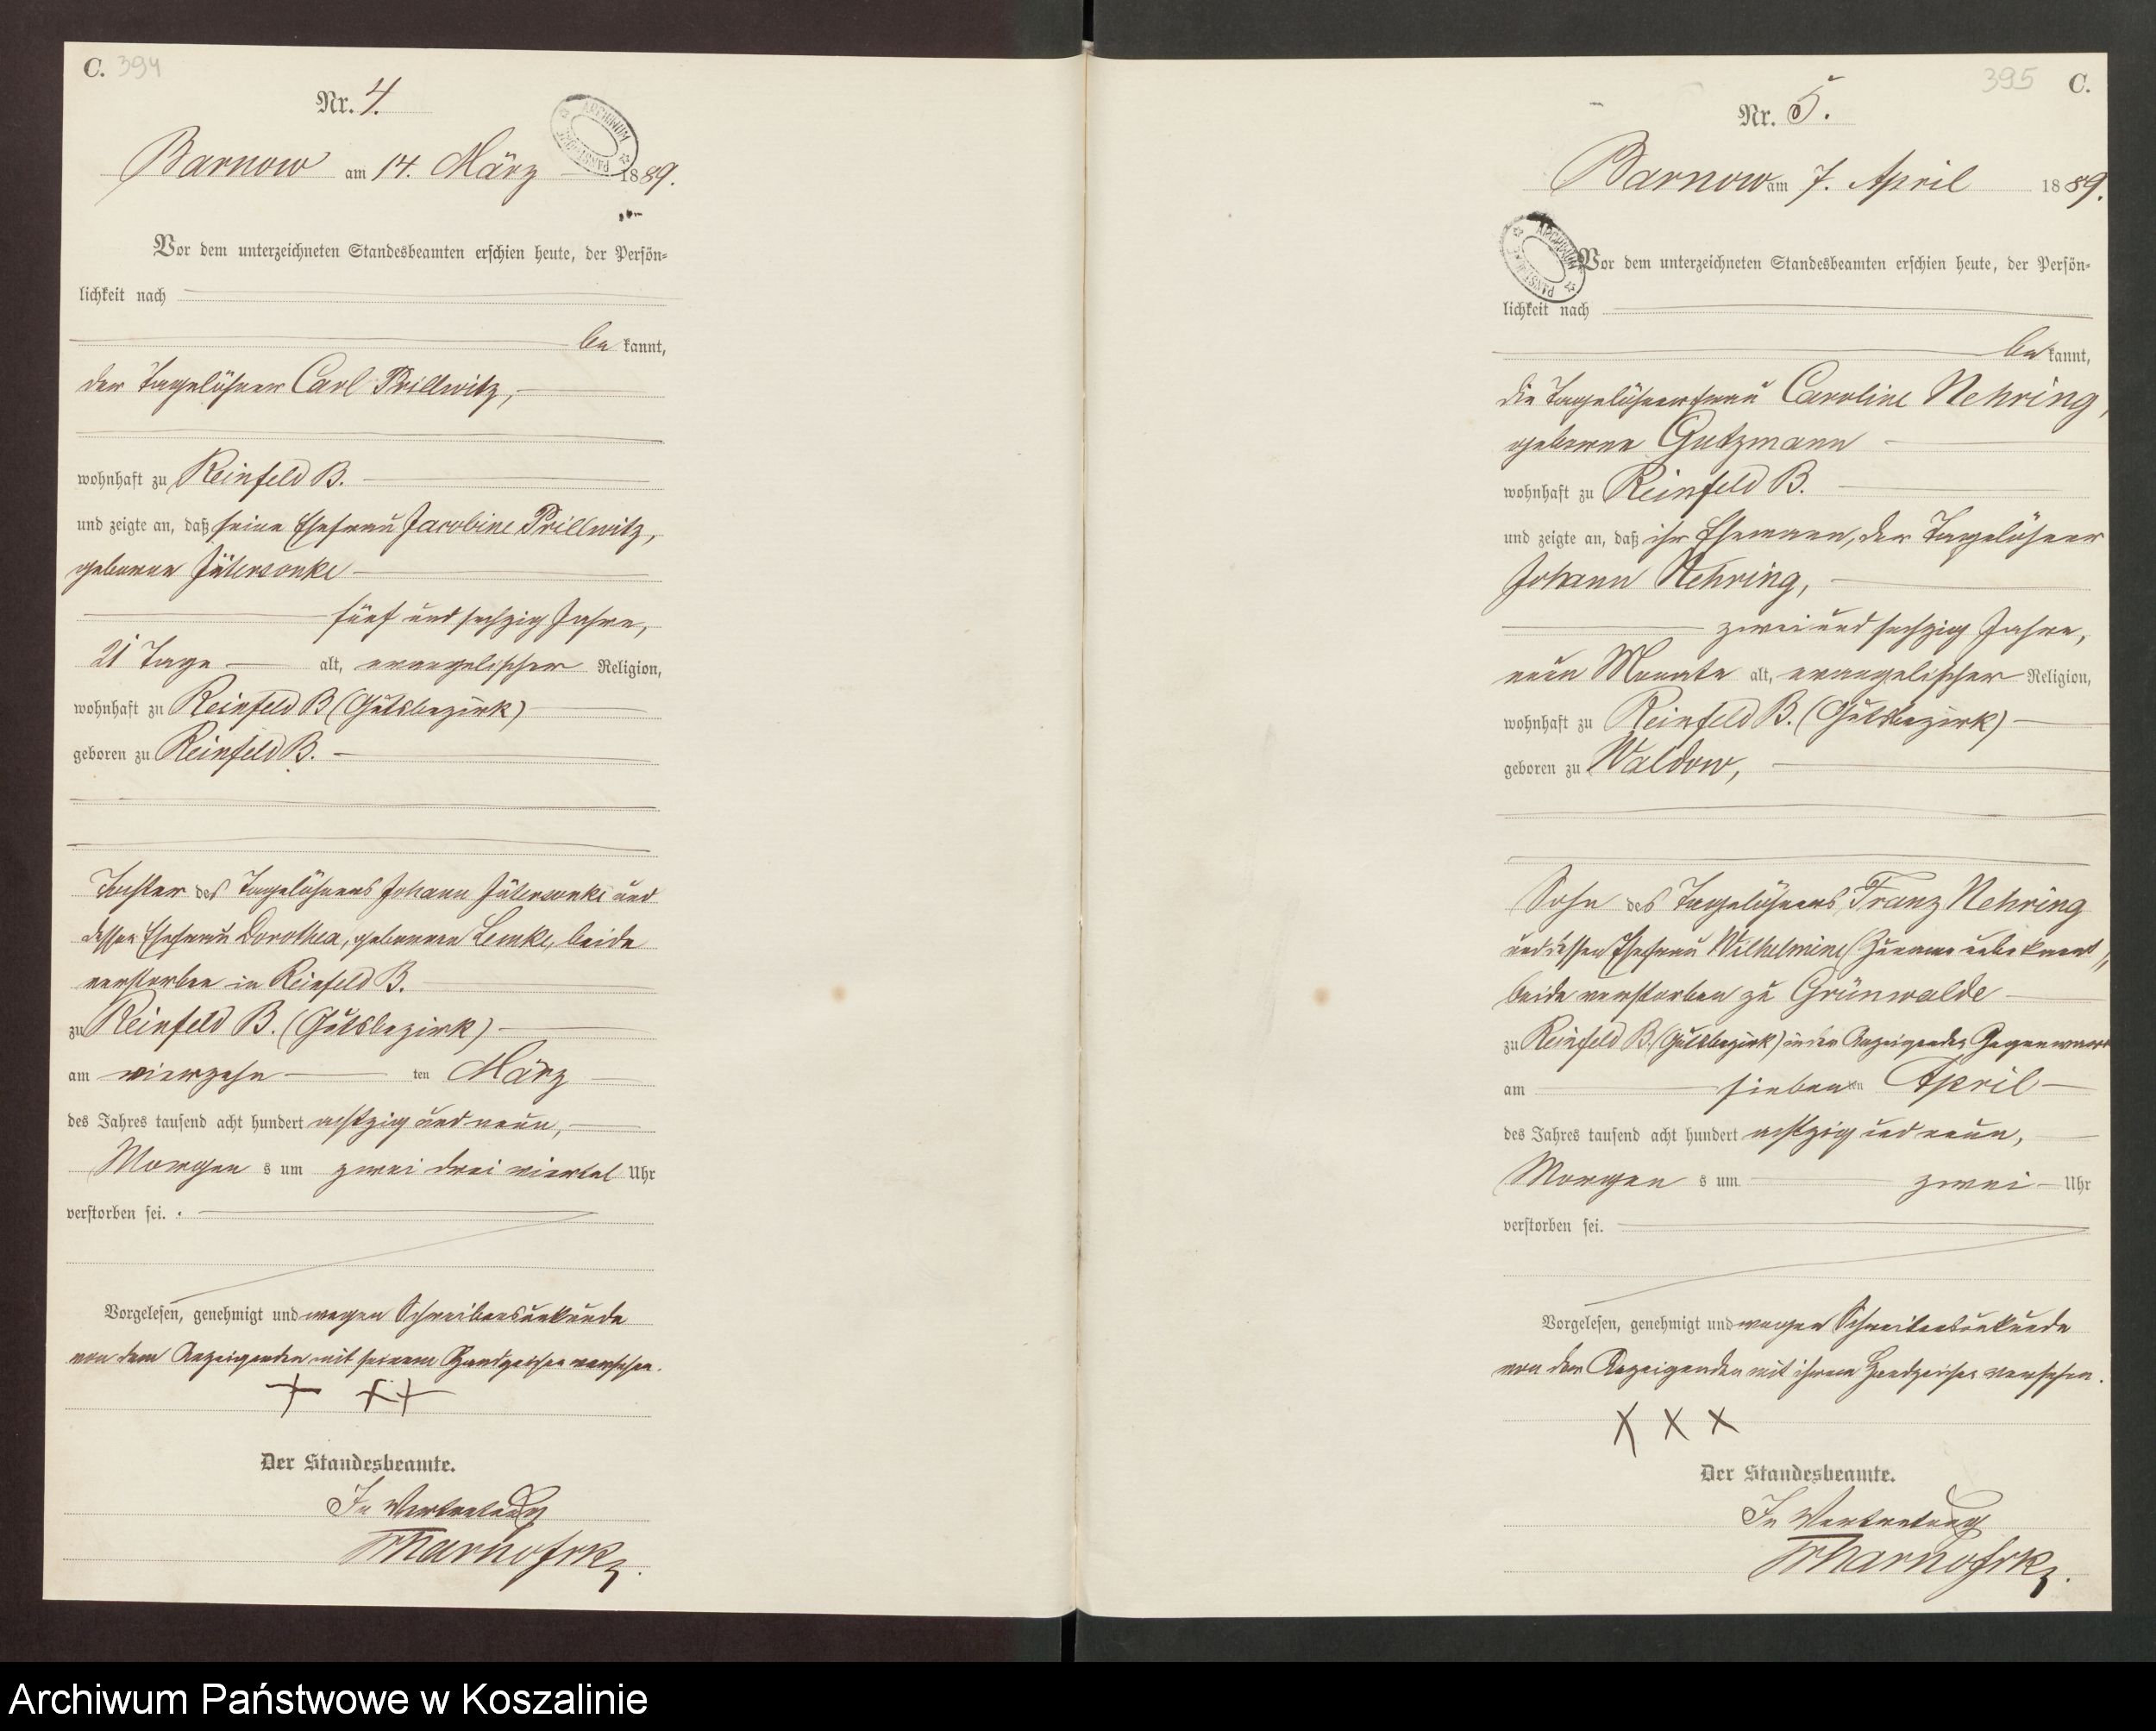 C. 394
Nr. 4.
ARCHIWUM PAŃSTWOWE
Barnow am 14. März 1889.
Vor dem unterzeichneten Standesbeamten erschien heute, der Persön-
lichkeit nach
be kannt,
der Tagelöhner Carl Prillwitz,
wohnhaft zu Reinfeld B.
und zeigte an, daß seine Ehefrau Jacobine Prillwitz,
geborene Jütersonke
fünf und sechzig Jahre,
21 Tage alt, evangelischer Religion,
wohnhaft zu Reinfeld B (Gutsbezirk)
geboren zu Reinfeld B.
Tochter des Tagelöhners Johann Jütersonke und
dessen Ehefrau Dorothea, geborenen Lemke, beide
verstorben in Reinfeld B.
zu Reinfeld B. (Gutsbezirk)
am vierzehn ten März
des Jahres tausend acht hundert achtzig und neun,
Morgen s um zwei drei viertel Uhr
verstorben sei.
Vorgelesen, genehmigt und wegen Schreibensunkunde
von dem Anzeigenden mit seinem Handzeichen versehen.
+ ++
Der Standesbeamte.
In Vertretung
395 C.
Nr. 5.
Barnow am 7. April 1889.
ARCHIWUM PAŃSTWOWE
Vor dem unterzeichneten Standesbeamten erschien heute, der Persön-
lichkeit nach
be kannt,
die Tagelöhnerfrau Caroline Nehring,
geborene Gutzmann
wohnhaft zu Reinfeld B.
und zeigte an, daß ihr Ehemann, der Tagelöhner
Johann Nehring,
zwei und sechzig Jahre,
neun Monate alt, evangelischer Religion,
wohnhaft zu Reinfeld B. (Gutsbezirk)
geboren zu Waldow,
Sohn des Tagelöhners Franz Nehring
und dessen Ehefrau Wilhelmine (Zuname unbekannt),
beide verstorben zu Grünwalde
zu Reinfeld B. (Gutsbezirk) in der Anzeigenden Gegenwart
am sieben ten April
des Jahres tausend acht hundert achtzig und neun,
Morgen s um zwei Uhr
verstorben sei.
Vorgelesen, genehmigt und wegen Schreibensunkunde
von der Anzeigenden mit ihrem Handzeichen versehen.
X X X
Der Standesbeamte.
In Vertretung
Archiwum Państwowe w Koszalinie